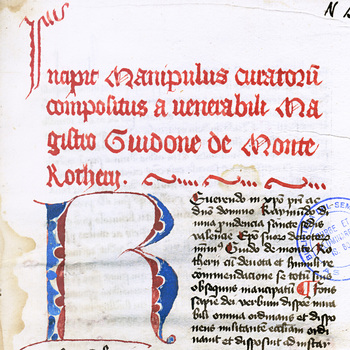 Incipit Manipulus curatorũ
compositus a uenerabili Ma
gistro Guidone de Monte
Rothery.
Reuerendo in xp̃o pri̅ ac
dño domino Raymũdo di
uina prudencia sancte sedis
ualencie. Ep̃o suorũ deuotorũ
Guido de monte Ro
therii cũ deuota et humili re
commendacione se totũ suis
obsequiis mancipatũ ¶ fons
sapie dei verbum disposi
bili omnia ordinans et dispo
nens militantẽ eccl̃iam ordi
nauit et disposuit ad instar